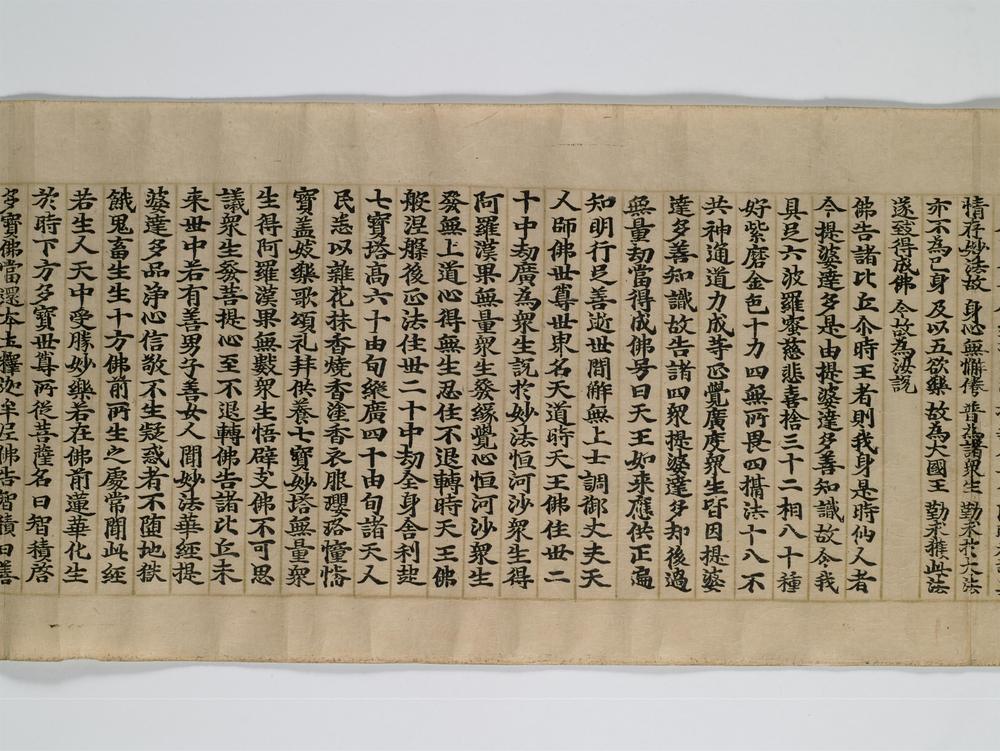 情存妙法故 身心無懈倦 普為諸衆生 勤求於大法
亦不為己身 及以五欲樂 故為大國王 勤求獲此法
遂致得成佛 今故為汝說
佛告諸比丘尒時王者則我身是時仙人者
今提婆達多是由提婆達多善知識故令我
具足六波羅蜜慈悲喜捨三十二相八十種
好紫磨金色十力四無所畏四攝法十八不
共神通道力成等正覺廣度衆生皆因提婆
達多善知識故告諸四衆提婆達多却後過
無量劫當得成佛号曰天王如來應供正遍
知明行足善逝世間解無上士調御丈夫天
人師佛世尊世界名天道時天王佛住世二
十中劫廣為衆生說於妙法恒河沙衆生得
阿羅漢果無量衆生發緣覺心恒河沙衆生
發無上道心得無生忍住不退轉時天王佛
般涅槃後正法住世二十中劫全身舍利起
七寶塔高六十由旬縱廣四十由旬諸天人
民悉以雜花抹香燒香塗香衣服瓔珞幢幡
寶盖妓樂歌頌礼拜供養七寶妙塔無量衆
生得阿羅漢果無數衆生悟辟支佛不可思
議衆生發菩提心至不退轉佛告諸比丘未
来世中若有善男子善女人聞妙法華經提
婆達多品淨心信敬不生疑惑者不墮地獄
餓鬼畜生生十方佛前所生之處常聞此經
若生人天中受勝妙樂若在佛前蓮華化生
於時下方多寶世尊所從菩薩名曰智積啓
多寶佛當還本土釋迦牟尼佛告智積曰善